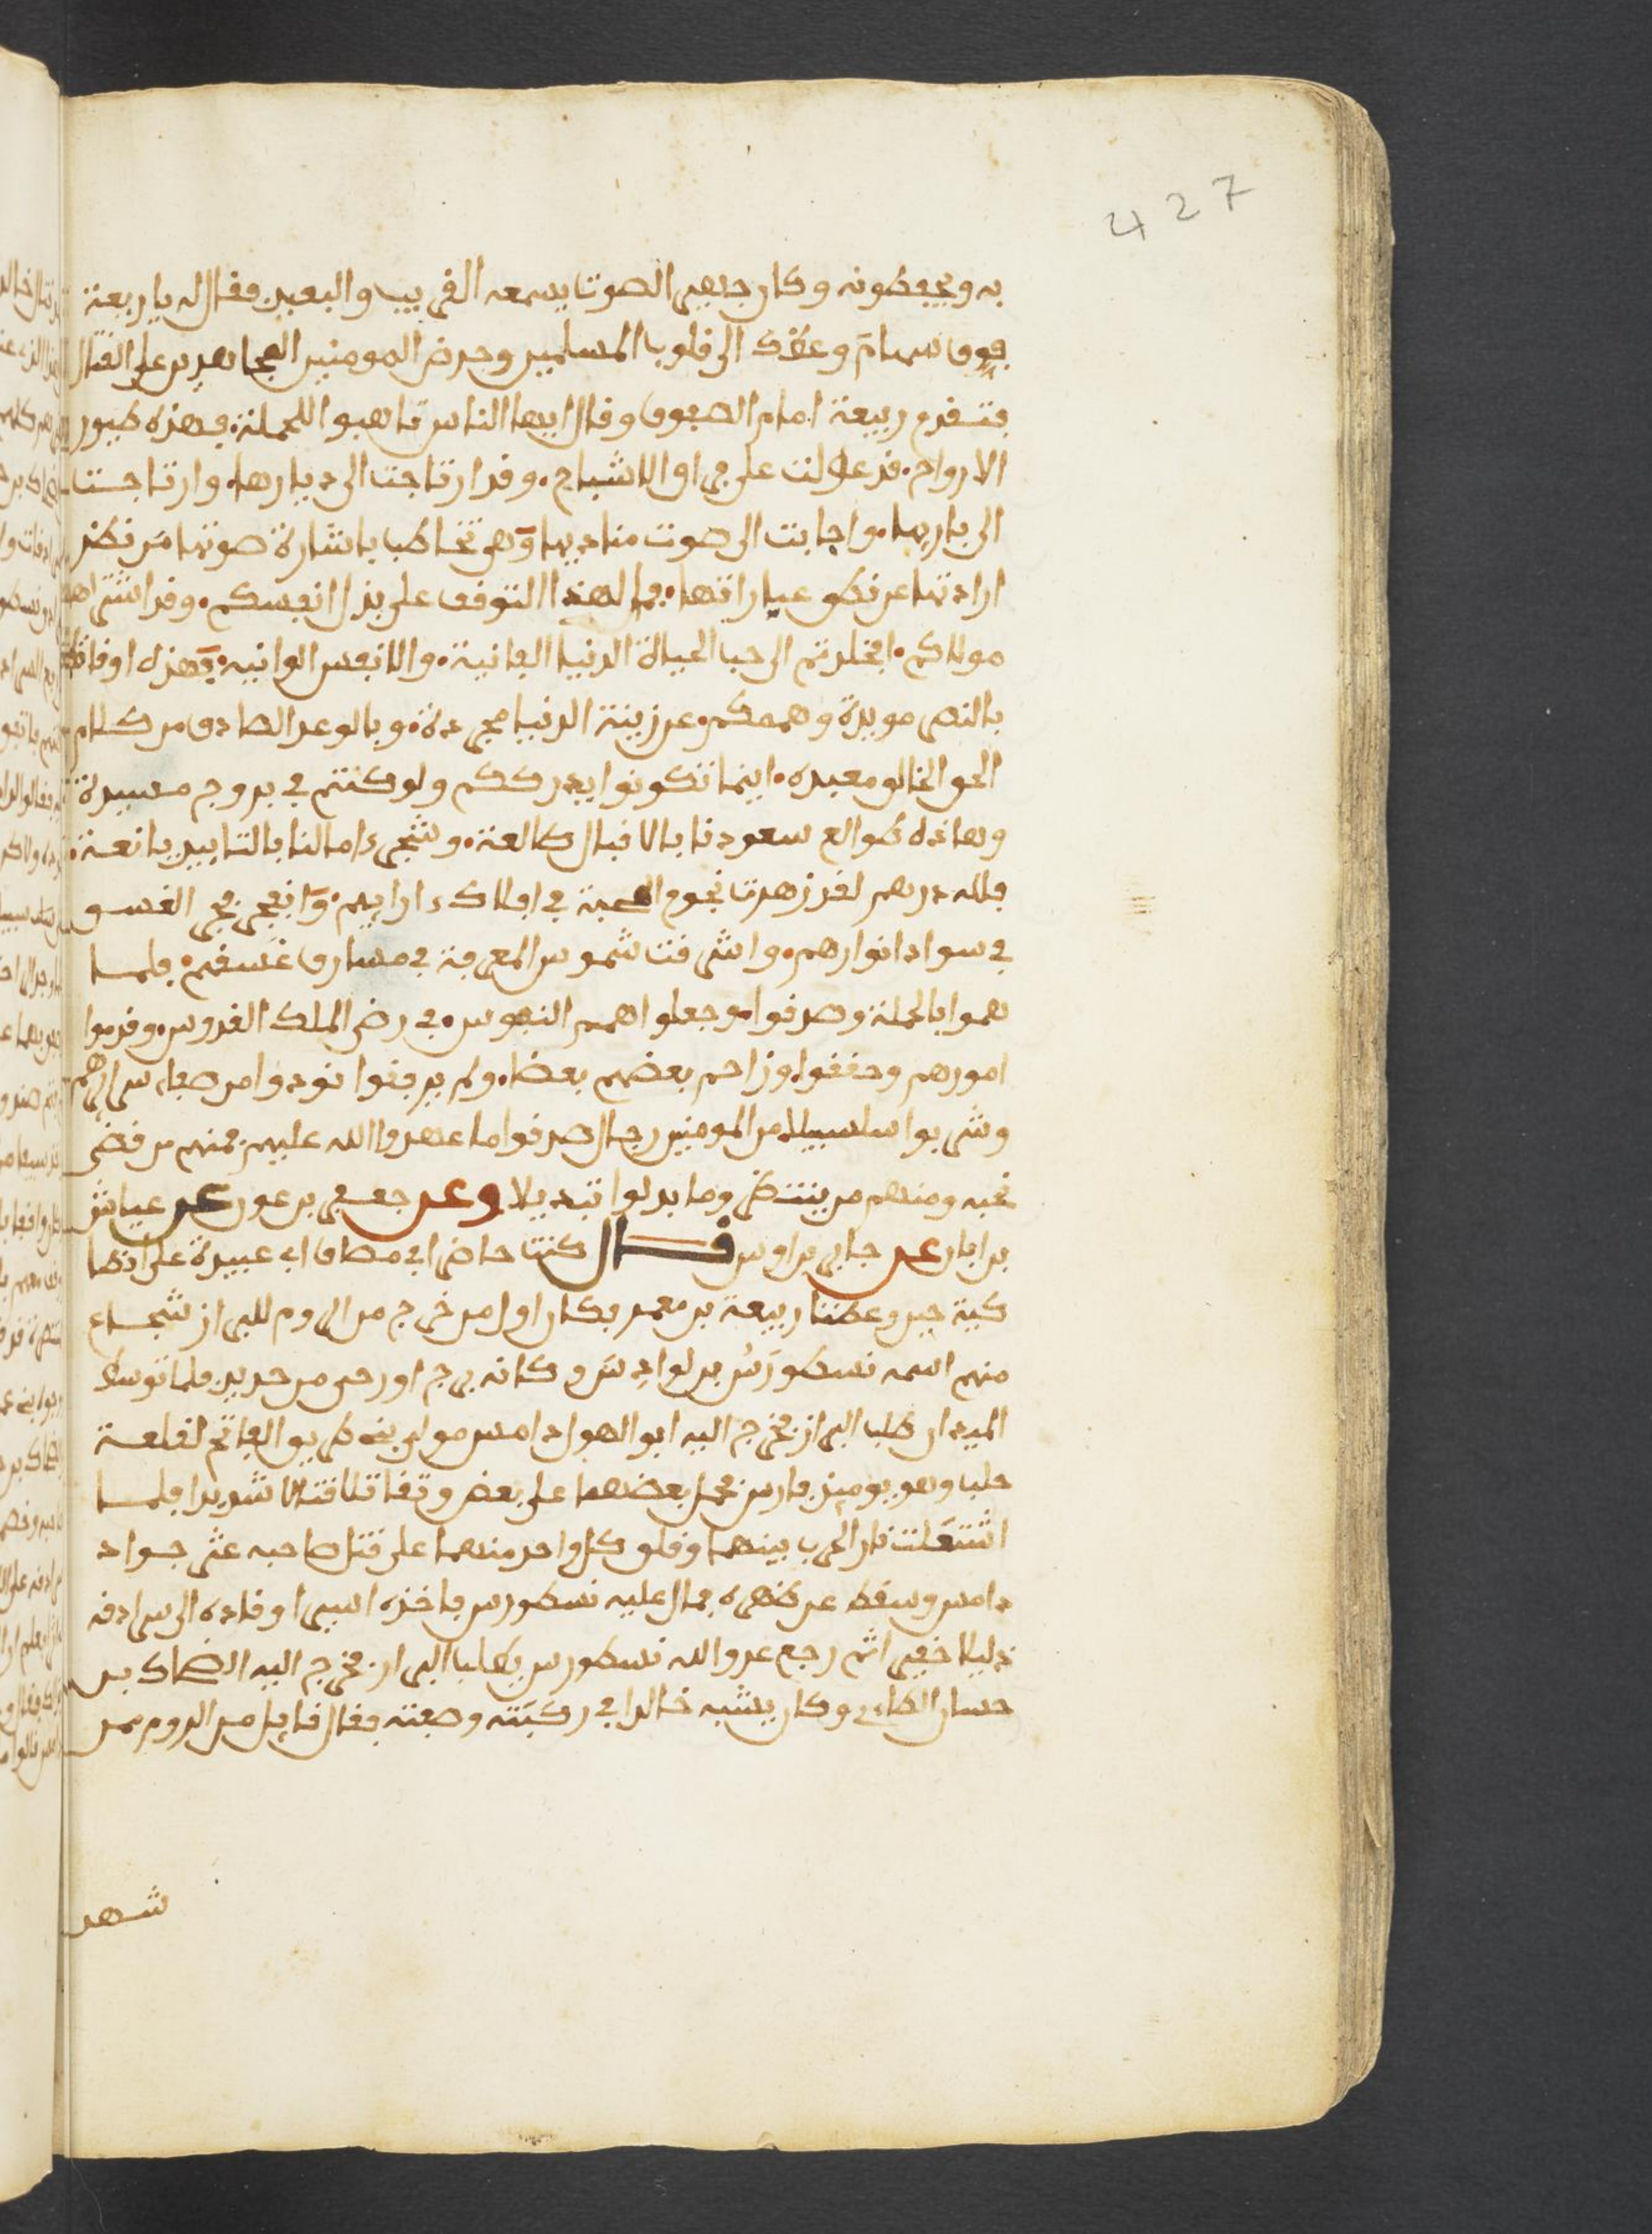 427
به ويحفظونه وكان جهير الصوت يسمعه القريب والبعيد فقال له يا ربيعة
فوق سهام وعظك الى قلوب المسلمين وحرض المومنين المجاهدين على القتال
فتقدم ربيعة امام الصفوف وقال ايها الناس تاهبوا للحملة فهذه طيور
الارواح قد عولت على فراق الاشباح وقد ارتاحت الى ديارها وارتاحت
الى باريها واجابت الى صوت مناديها وهي تخاطب باشارة صوتها من نظر
ارادتها عن نطق عباراتها فما لهذا التوقف على بذل انفسكم وقد اشتراها
مولاكم افخلدتم الى حب الحياة الدنيا الفانية والانفس الوانيه فهذه اوقاتكم
بالنصر مويدة وهممكم عن زينة الدنيا مجردة وبالوعد الصادق من كلام
الحق الخالق معبده اينما تكونوا يدرككم ولو كنتم في بروج مسيدة
وهاذه طوالع سعودنا بالاقبال طالعة وشجر ءامالنا بالتاييد يانعة
فلله درهم لقد زهرت نجوم المحبة في افلاك ءارايهم وانفجر فجر الغسو
في سواد انوارهم واشرفت شموس المعرفة في مشارق عشقهم فلما
هموا بالحملة وصدقوا وجعلوا اهمم النفوس في رضى الملك القدوس وقدموا
امورهم وحققوا وزاحم بعضهم بعضا ولم يرفقوا نودوا من صفاء سرايرهم
وشربوا سلسبيلا من المومنين رجال صدقوا ما عهدوا الله عليه فمنهم من قضى
نحبه ومنهم من ينتظر وما بدلوا تبديلا وعن جعفر بن عون عن عياش
بن ابان عن جابر بن اوس قال كنت حاضرا في مصاف ابي عبيدة على انطا
كية حين وعظنا ربيعة بن معمر فكان اول من خرج من الروم للبراز شجاع
منهم اسمه نسطورس بن لوادس وكانه برج او رحى من حديد فلما توسط
الميدان طلب البراز فخرج اليه ابو الهول دامس مولى بني طريف الفاتح لقلعة
حلب وهو يوميذ فارس فحمل بعضهما على بعض وتقاتلا قتالا شديدا فلما
اشتعلت نار الحرب بينهما وقلق كل واحد منهما على قتل صاحبه عثر جواد
دامس وسقط عن ظهره فمال عليه نسطورس فاخذه اسيرا وقاده الى سرادقه
ذليلا حقيرا ثم رجع عدو الله نسطورس يطلب البراز فخرج اليه الضحاك بن
حسان الطاءي وكان يشبه خالدا في ركبته وصفته فقال قايل من الروم ممن
شهد